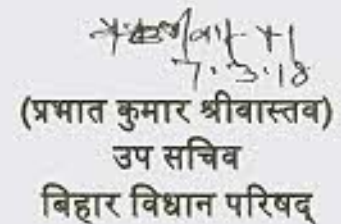 7.3.18
(प्रभात कुमार श्रीवास्तव)
उप सचिव
बिहार विधान परिषद्